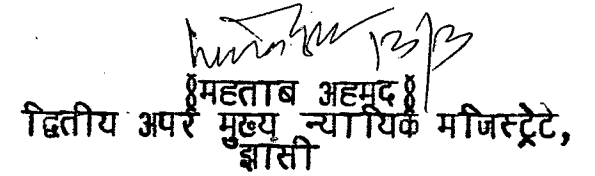 §महताब अहमद§
द्वितीय अपर मुख्य न्यायिक मजिस्ट्रेटे,
झांसी